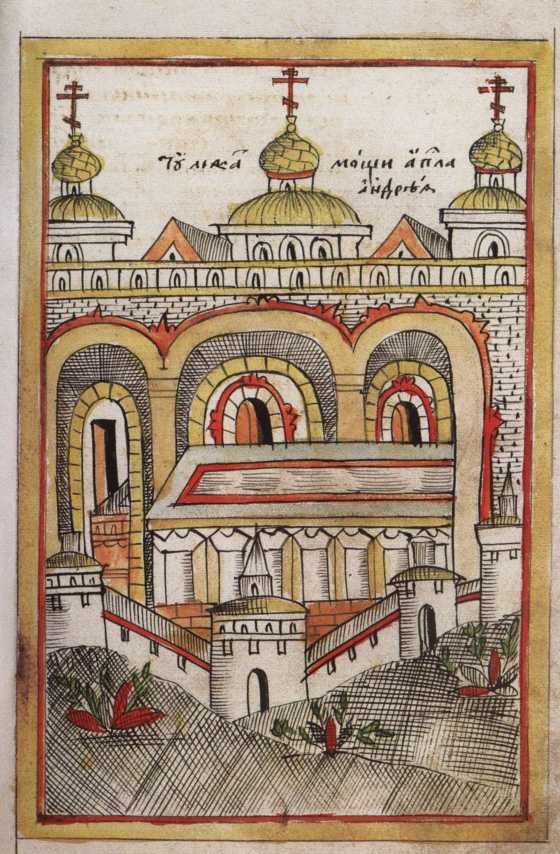 тꙋ́ лежаⷮ мо́щи а҆пⷭ҇ла
а҆ндрѣ́ѧ